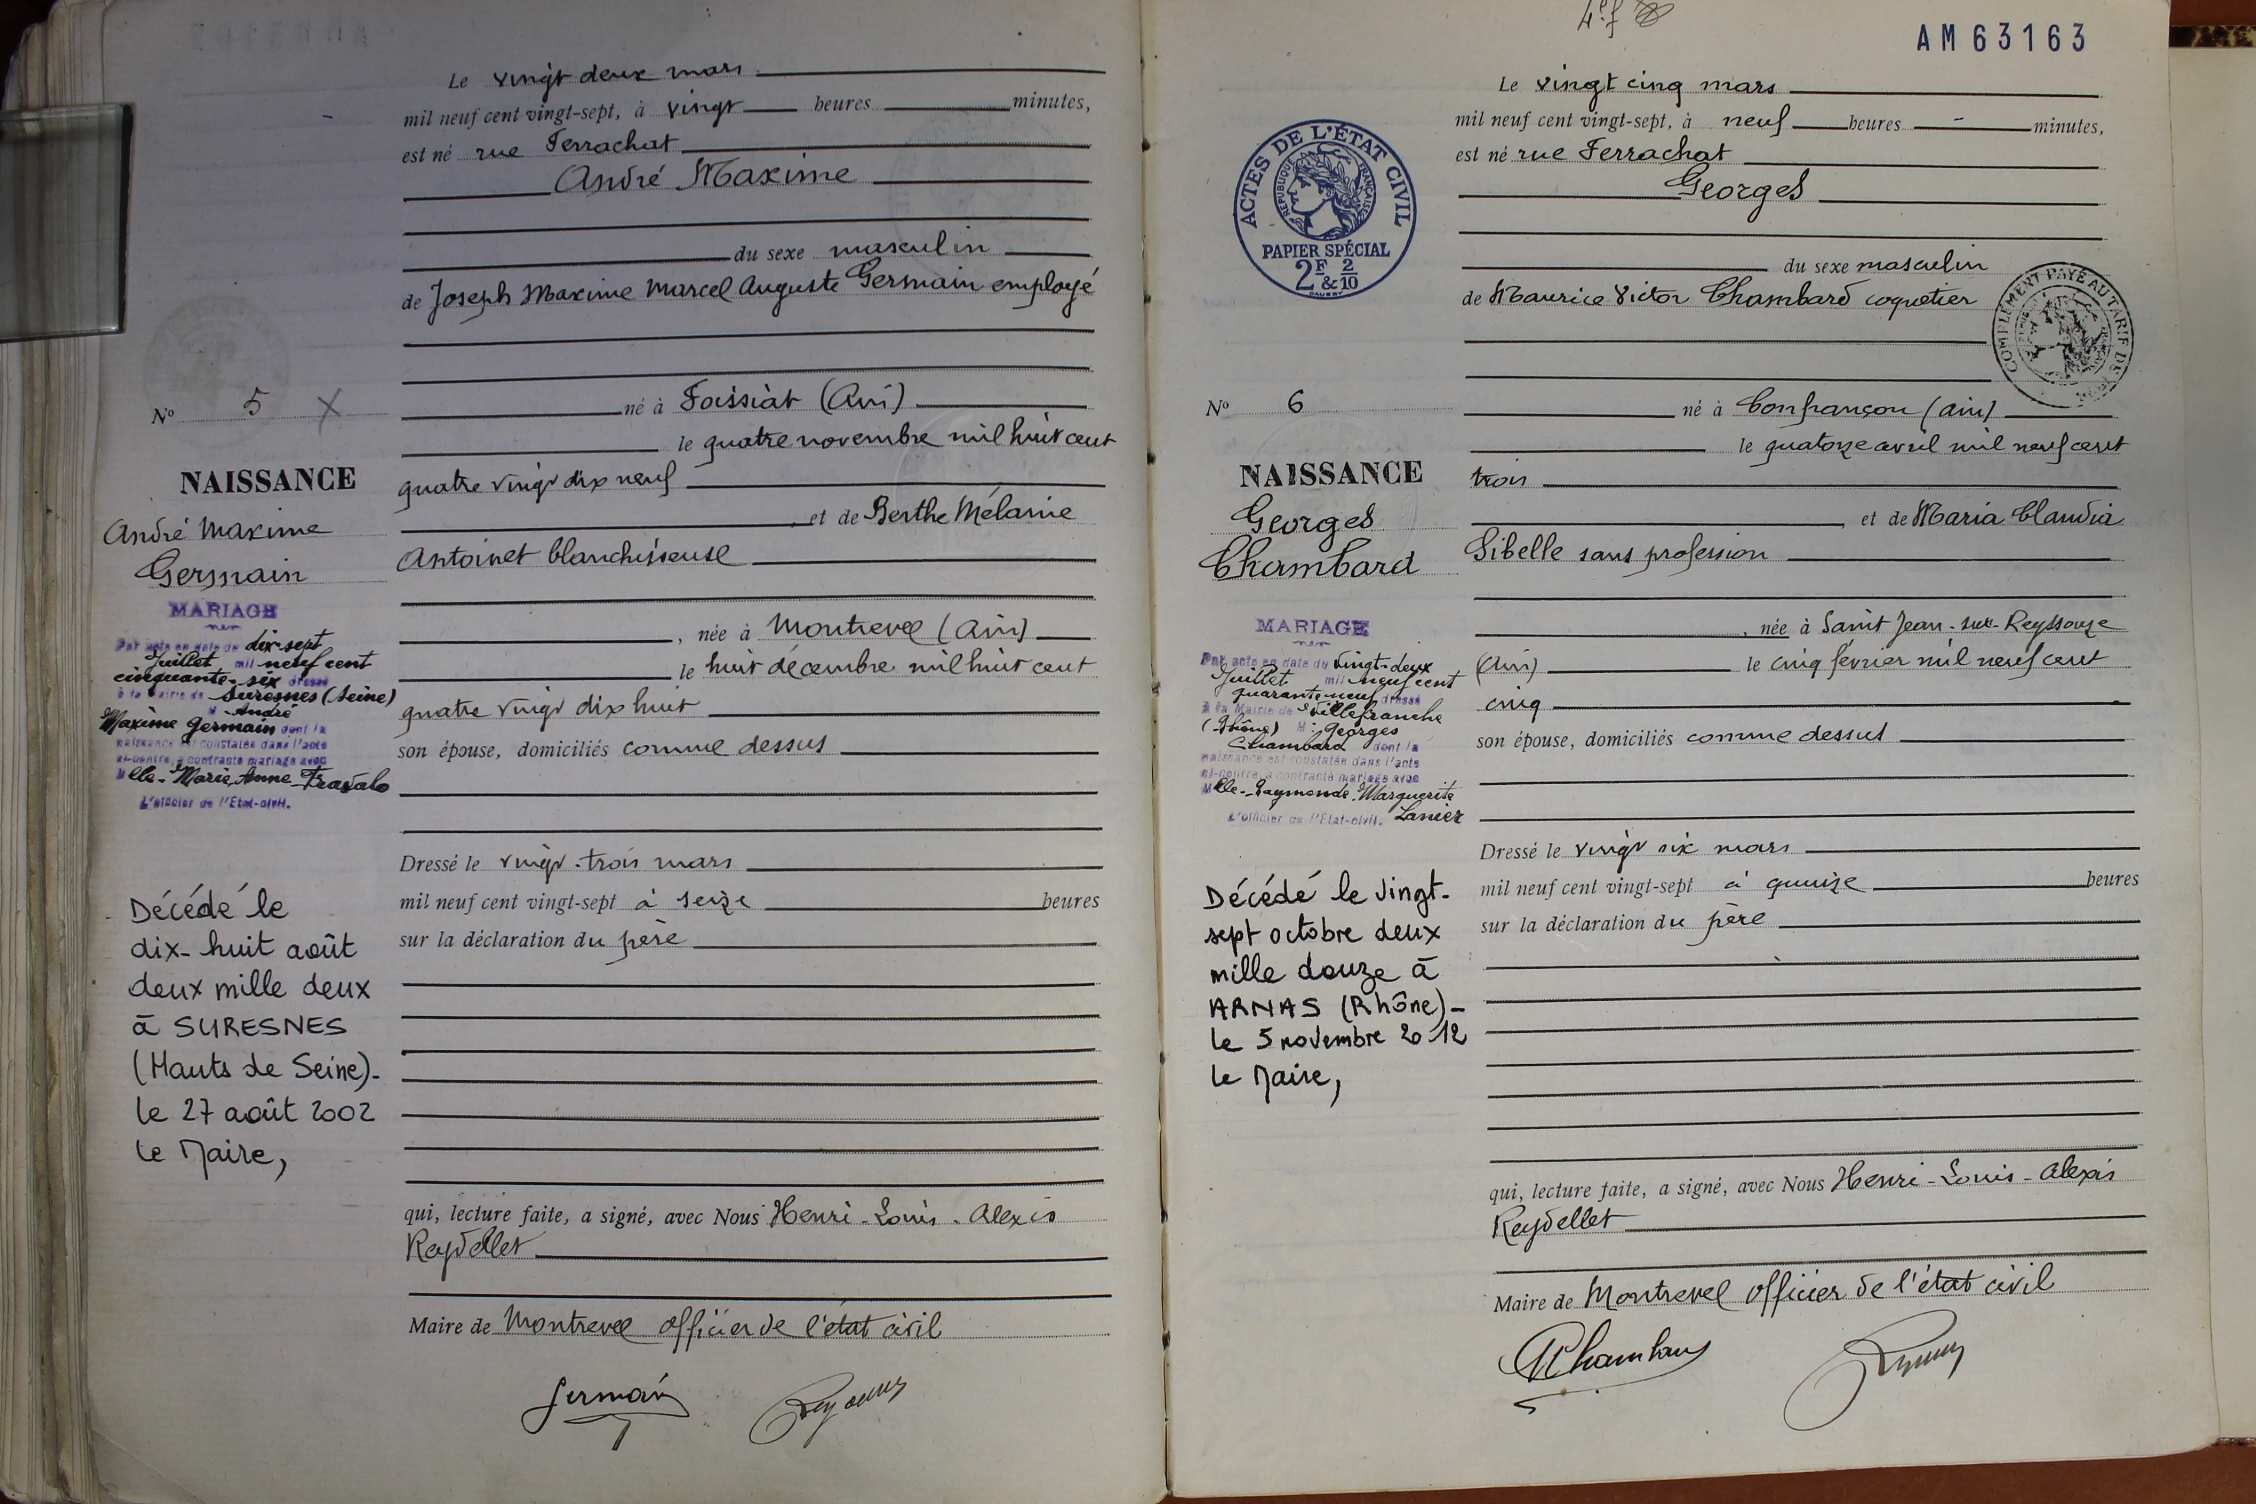 Le vingt deux mars
mil neuf cent vingt-sept, à vingt heures minutes,
est né rue Ferrachat
André Maxime
du sexe masculin
de Joseph Maxime Marcel Auguste Germain employé
né à Foissiat (Ain)
le quatre novembre mil huit cent
quatre vingt dix neuf
et de Berthe Mélanie
Antoinet blanchisseuse
, née à Montrevel (Ain)
le huit décembre mil huit cent
quatre vingt dix huit
son épouse, domiciliés comme dessus
Dressé le vingt-trois mars
mil neuf cent vingt-sept à seize heures
sur la déclaration du père
qui, lecture faite, a signé, avec Nous Henri-Louis-Alexis
Reydellet
Maire de Montrevel officier de l'état civil
Germain
N° 5
NAISSANCE
André Maxime
Germain
MARIAGE
Par acte en date du dix-sept
Juillet mil neuf cent
cinquante-six dressé
à la Mairie de Suresnes (Seine)
M André
Maxime Germain dont la
naissance est constatée dans l'acte
ci-contre, a contracté mariage avec
Mlle Marie Anne Travalo
L'officier de l'Etat-civil.
Décédé le
dix-huit août
deux mille deux
à SURESNES
(Hauts de Seine)-
le 27 août 2002
le Maire,
AM63163
Le vingt cinq mars
mil neuf cent vingt-sept, à neuf heures - minutes,
est né rue Ferrachat
Georges
du sexe masculin
de Maurice Victor Chambard coquetier
né à Confrançon (Ain)
le quatorze avril mil neuf cent
trois
et de Maria Claudia
Sibelle sans profession
, née à Saint Jean-sur-Reyssouze
(Ain) le cinq février mil neuf cent
cinq
son épouse, domiciliés comme dessus
Dressé le vingt six mars
mil neuf cent vingt-sept à quinze heures
sur la déclaration du père
qui, lecture faite, a signé, avec Nous Henri-Louis-Alexis
Reydellet
Maire de Montrevel officier de l'état civil
ACTES DE L'ÉTAT CIVIL
RÉPUBLIQUE FRANÇAISE
PAPIER SPÉCIAL
2F & 2/10
COMPLÉMENT PAYÉ AU TARIF DE
N° 6
NAISSANCE
Georges
Chambard
MARIAGE
Par acte en date du vingt-deux
Juillet mil neuf cent
quarante-neuf dressé
à la Mairie de Villefranche
(Rhône) M: Georges
Chambard dont la
naissance est constatée dans l'acte
ci-contre, a contracté mariage avec
Mlle Raymonde Marguerite
L'officier de l'Etat-civil. Lanier
Décédé le vingt-
sept octobre deux
mille douze à
ARNAS (Rhône)-
le 5 novembre 2012
le Maire,